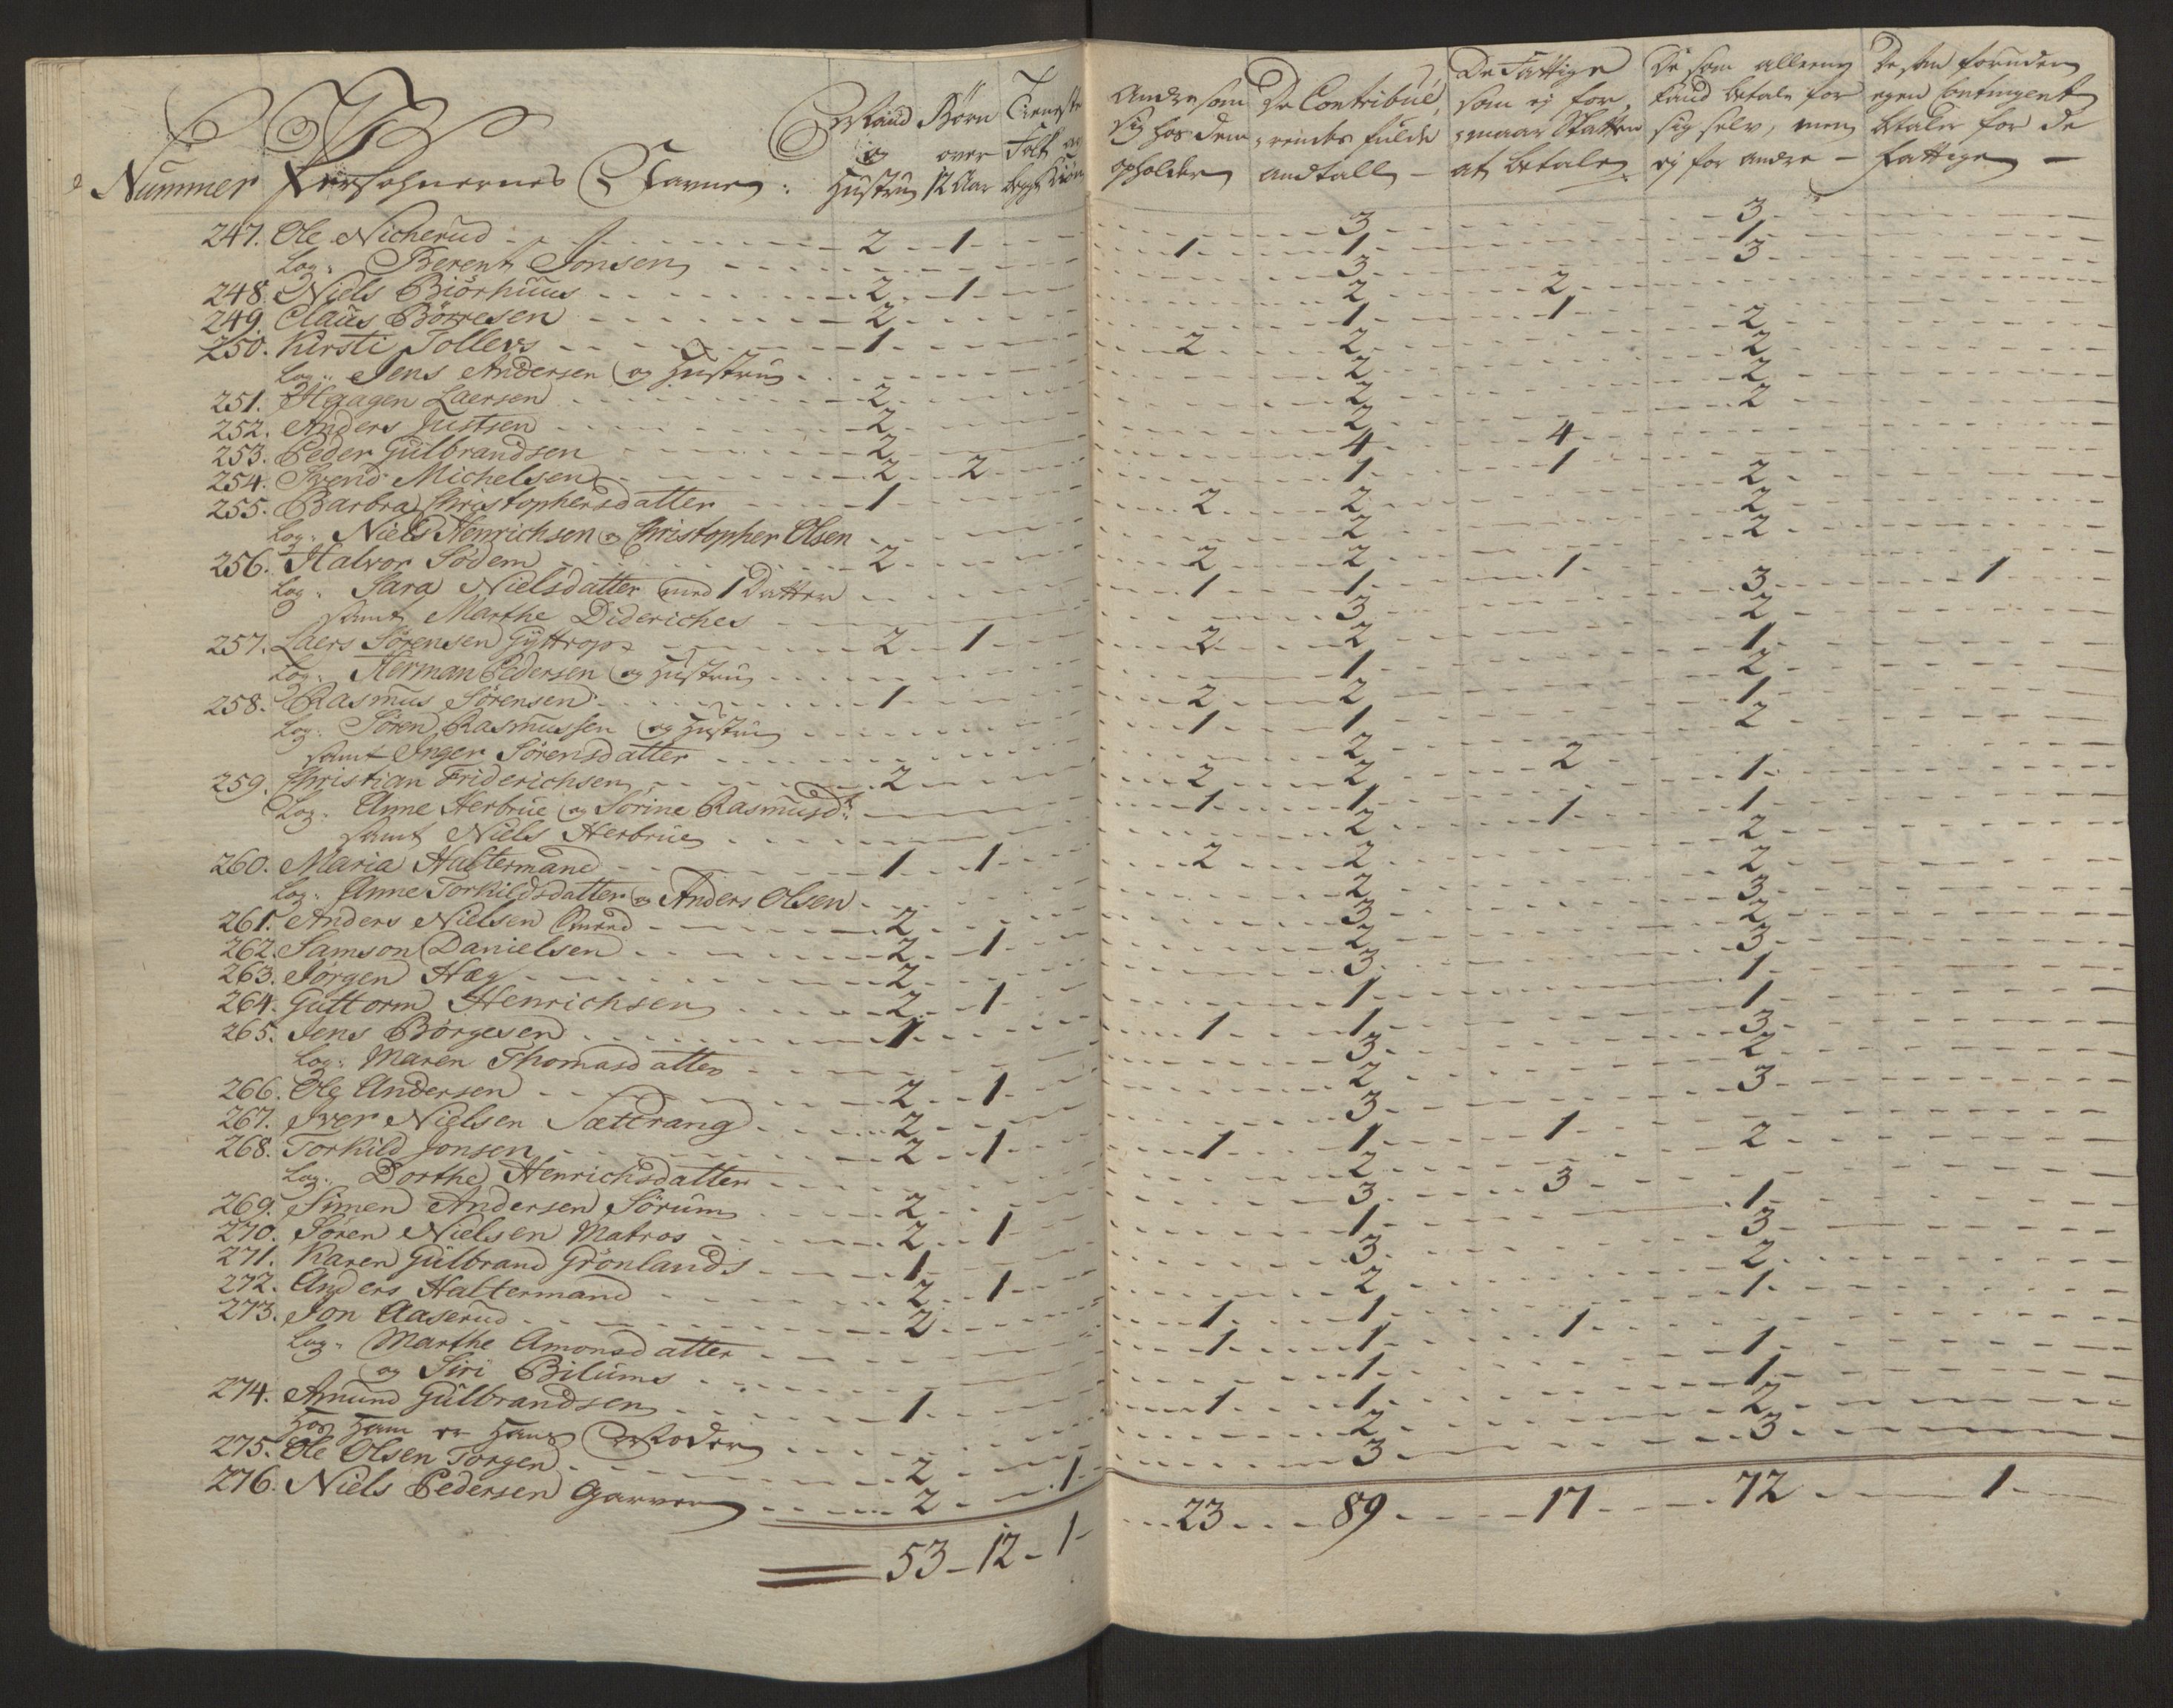 Nummer Persohnernes Navne:
Mand og Hustru
Børn over 12 Aar
Tieneste Folk
Andre som sig hos dem opholder
De Contribuerendes fulde andtall
De Fattige som ej formaar Skatten at betale
De som alleene kand betale for sig selv, men ej for andre
De som foruden egen Contingent betaler for de Fattige
247. Ole Nicherud 2 1 3 3
Log: Berent Jonsen 1 1 1
248. Niels Biörhuus 2 1 3 3
249. Claus Börresen 2 2 2
250. Kirsti Tollevs 1 1 1
Log: Jens Andersen og Hustru 2 2 2
251. Haagen Laersen 2 2 2
252. Anders Justsen 2 2 2
253. Peder Gülbrandsen 2 2 2
254. Svend Michelsen 2 2 4 4
255. Barbra Christophersdatter 1 1 1
Log: Niels Henrichsen og Christopher Olsen 2 2 2
256. Halvor Sodem 2 2 2
Log: Sara Nielsdatter med 1 Datter 2 2 2
samt Marthe Dideriches 1 1 1
257. Laers Sörensen Gyttrop 2 1 3 3 1
Log: Herman Pedersen og Hustru 2 2 2
258. Rasmus Sörensen 1 1 1
Log: Sören Rasmussen og Hustru 2 2 2
samt Inger Sörensdatter 1 1 1
259. Christian Friderichsen 2 2 2
Log: Anne Herbrue og Sorine Rasmusd: 2 2 2
samt Niels Herbrue 1 1 1
260. Maria Haltermand 1 1 2 1 1
Log: Anne Torkildsdatter og Anders Olsen 2 2 2
261. Anders Nielsen 2 2 2
262. Samson Danielsen 2 1 3 3
263. Jörgen Hæg 2 2 2
264. Guttorm Henrichsen 2 1 3 3
265. Jens Börgesen 1 1 1
Log: Maren Thomasdatter 1 1 1
266. Ole Andersen 2 1 3 3
267. Iver Nielsen Sættrang 2 2 2
268. Torkild Jonsen 2 1 3 3
Log: Dorthe Henrichsdatter 1 1 1
269. Simen Andersen Sörum 2 2 2
270. Sören Nielsen Matros 2 1 3 3
271. Karen Gülbrand Grönlands 1 1 1
272. Anders Haltermand 2 1 3 3
273. Jon Aaserud 2 2 2
Log: Marthe Amonsdatter 1 1 1
og Siri Bilums 1 1 1
274. Amund Gülbrandsen 1 1 1
Hos Ham er Hans Moder 1 1 1
275. Ole Olsen Torgen 2 2 2
276. Niels Pedersen Garver 2 1 3 3
53 12 1 23 89 17 72 1